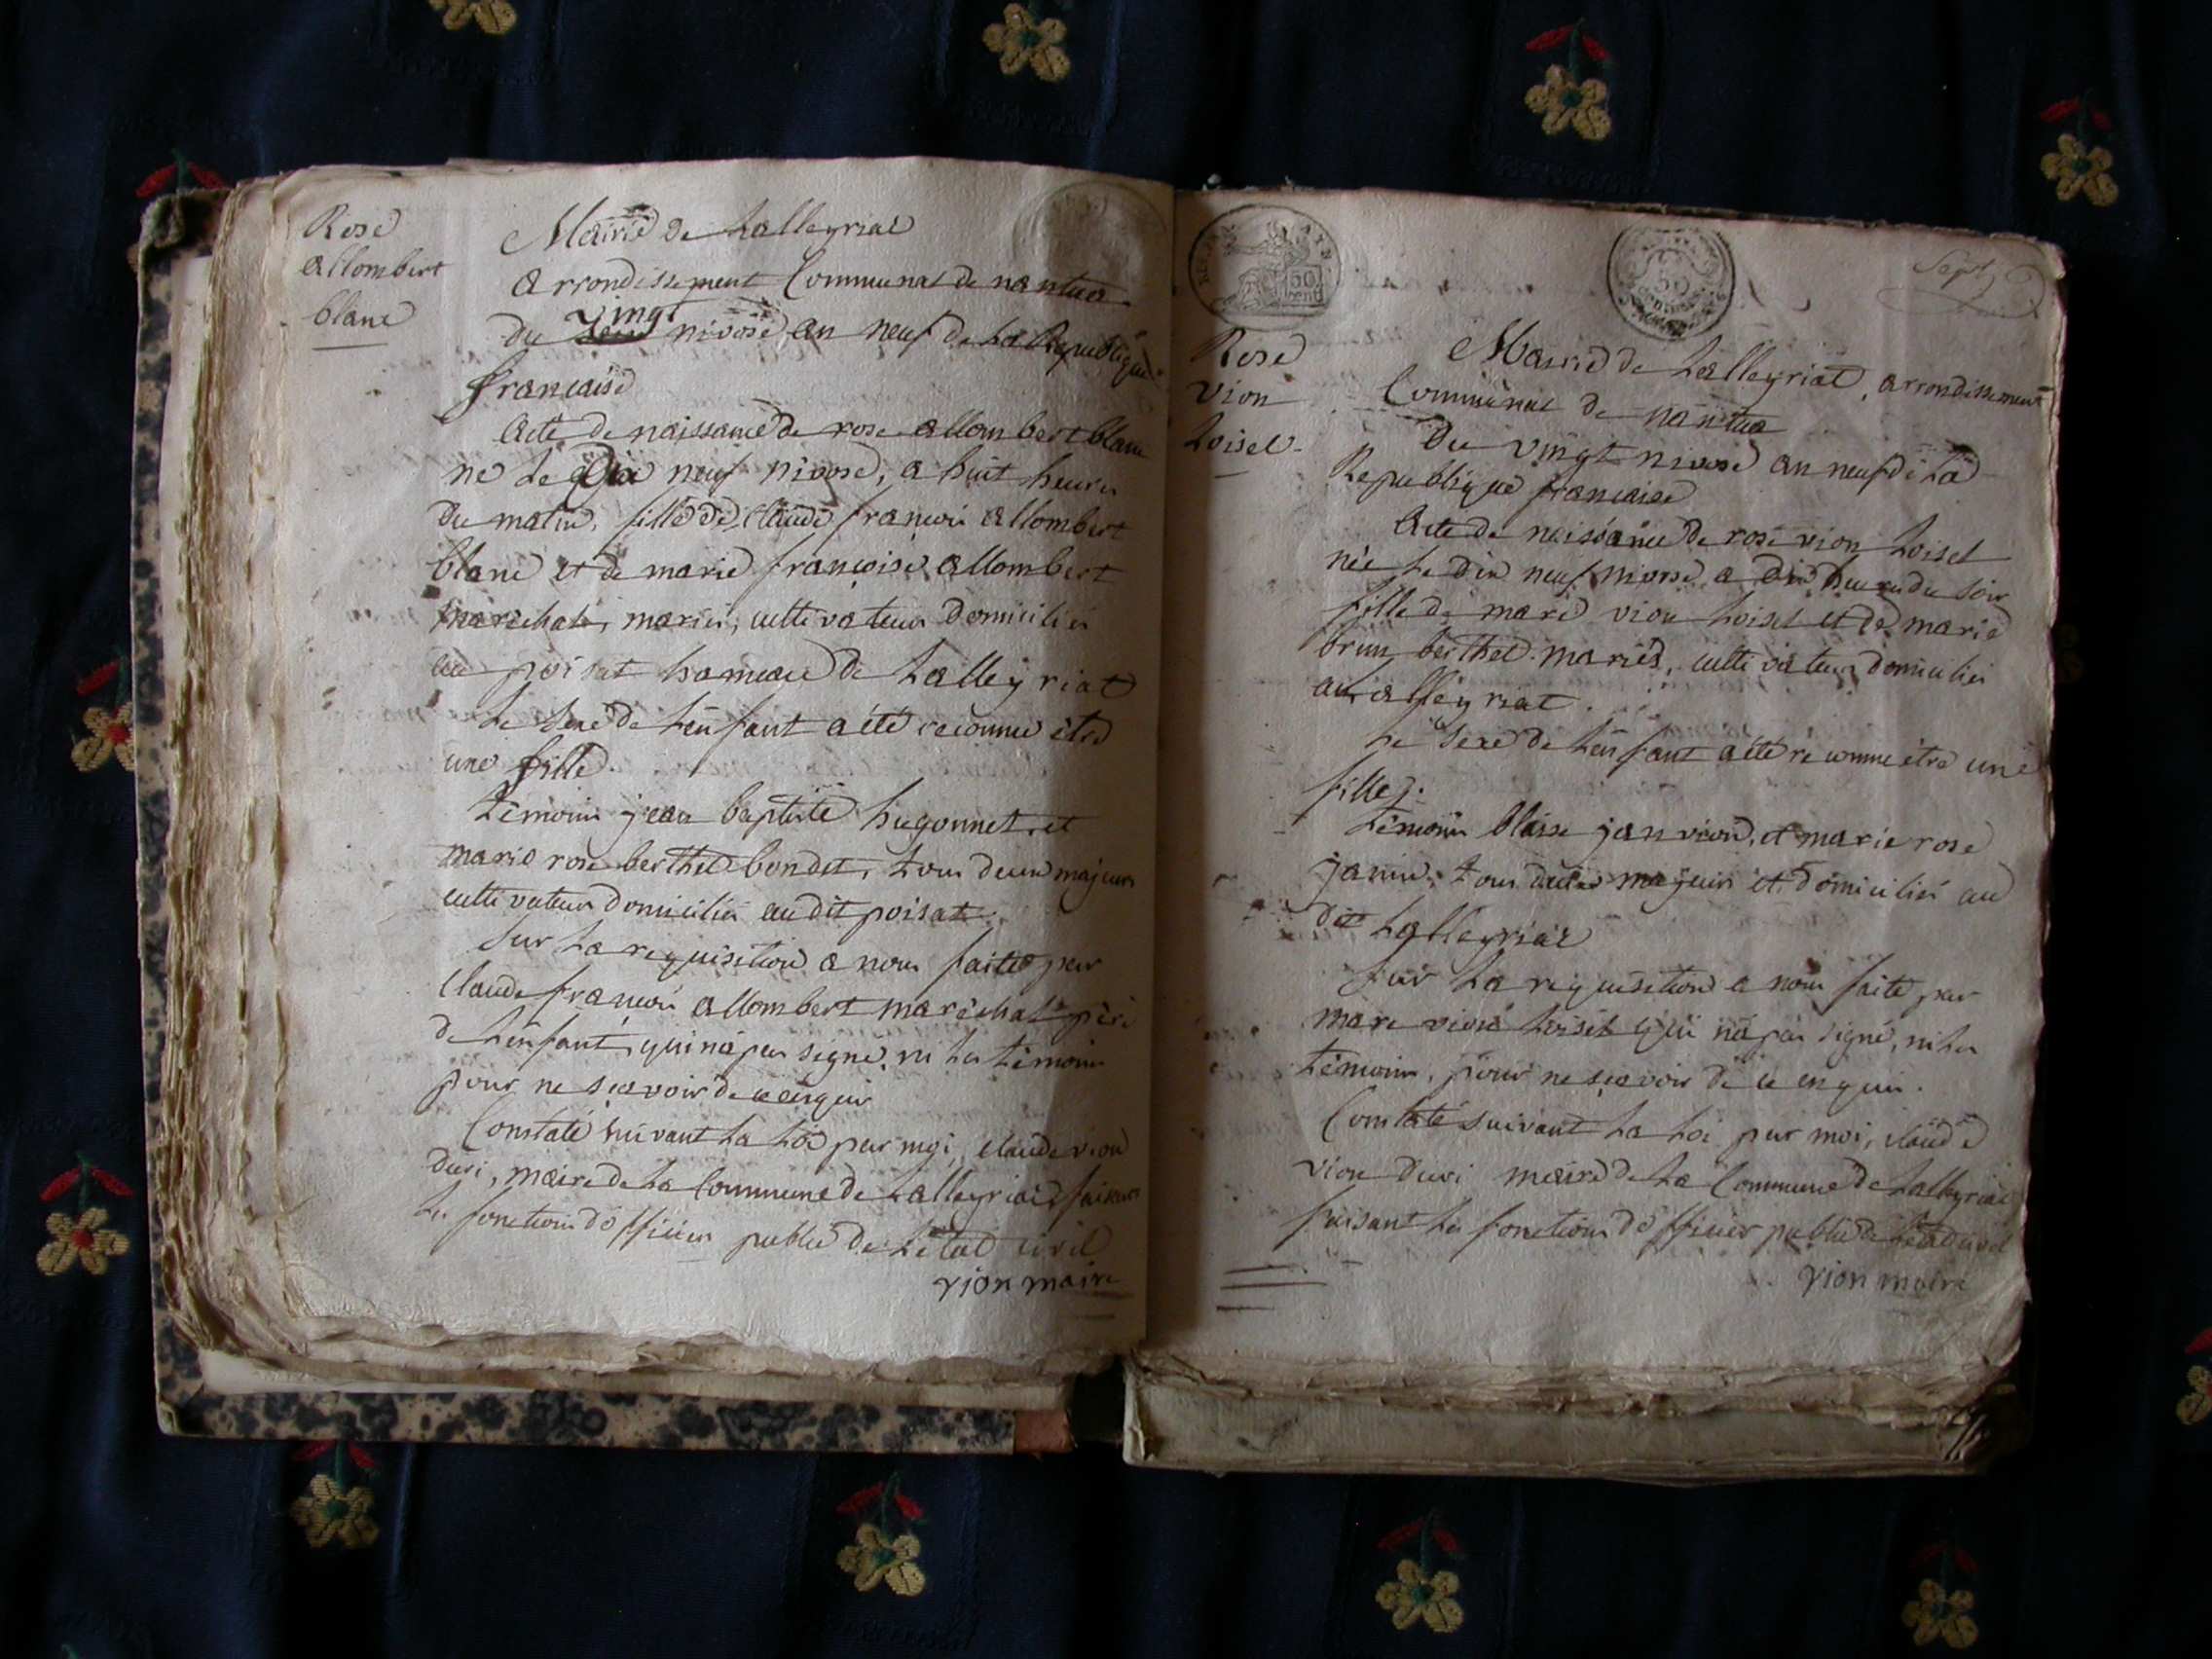 Rose
allombert
blanc
Mairie de Lalleyriat
arrondissement Communal de nantua
Du vingt nivose an neuf de La Republique
francaise
Acte de naissance de rose allombert blanc
né Le Dix neuf nivose, a huit heures
du matin, fille de Claude françois allombert
blanc et de marie françoise allombert
marechal, mariés, cultivateurs Domiciliés
au poisat hameau de Lalleyriat
Le Sexe de L'enfant a été reconnu être
une fille.
Témoins jean baptiste hugonnet et
marie rose berthet bondet, tous deux majeurs
cultivateurs domiciliés au dit poisat.
Sur La requisition a nous faite par
Claude françois allombert maréchal père
de L'enfant, qui n'a pas signé, ni Les témoins
pour ne sçavoir de ce enquis
Constaté suivant La Loi par moi, claude vion
duri, maire de La Commune de Lalleyriat, faisant
Les fonctions d'officier public de L'état civil
vion maire
50
cent
50
Sept
Rose
Vion
Loisel.
Mairie de Lalleyriat, arrondissement
Communal de nantua
Du vingt nivose an neuf de La
Republique francaise
Acte de naissance de rose vion Loisel
née Le dix neuf nivose a dix heures du soir
fille de marc vion Loisel et de marie
brun berthet mariés, cultivateurs domiciliés
au Lalleyriat.
Le Sexe de L'enfant a été reconnu être une
fille.
Témoins blaise jan vion, et marie rose
janin, tous deux majeurs et domiciliés au
dit Lalleyriat
Sur La requisition a nous faite par
marc vion Loisel qui n'a pas signé, ni Les
témoins, pour ne sçavoir de ce enquis.
Constaté suivant La Loi par moi, claude
vion duri maire de La Commune de Lalleyriat
faisant Les fonctions d'officier public de L'état civil
vion maire